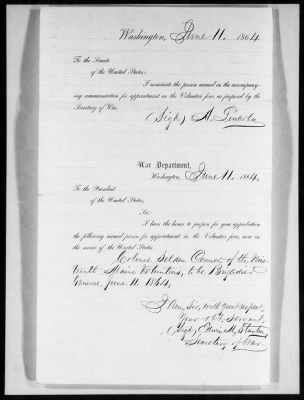 Washington, June 11, 1864.
To the Senate
of the United States:
I nominate the person named in the accompany-
ing communication for appointment in the Volunteer force as proposed by the
Secretary of War.
(Sigd) A. Lincoln
War Department,
Washington, June 11, 1864.
To the President
of the United States,
Sir:
I have the honor to propose for your approbation
the following named person for appointment in the Volunteer force, now in
the service of the United States.
Colonel Selden Connor, of the Nine-
teenth Maine Volunteers, to be Brigadier
General, June 11, 1864.
I Am, Sir, with great respect,
Your obt. Servant.
(Sigd) Edwin M. Stanton
Secretary of War.